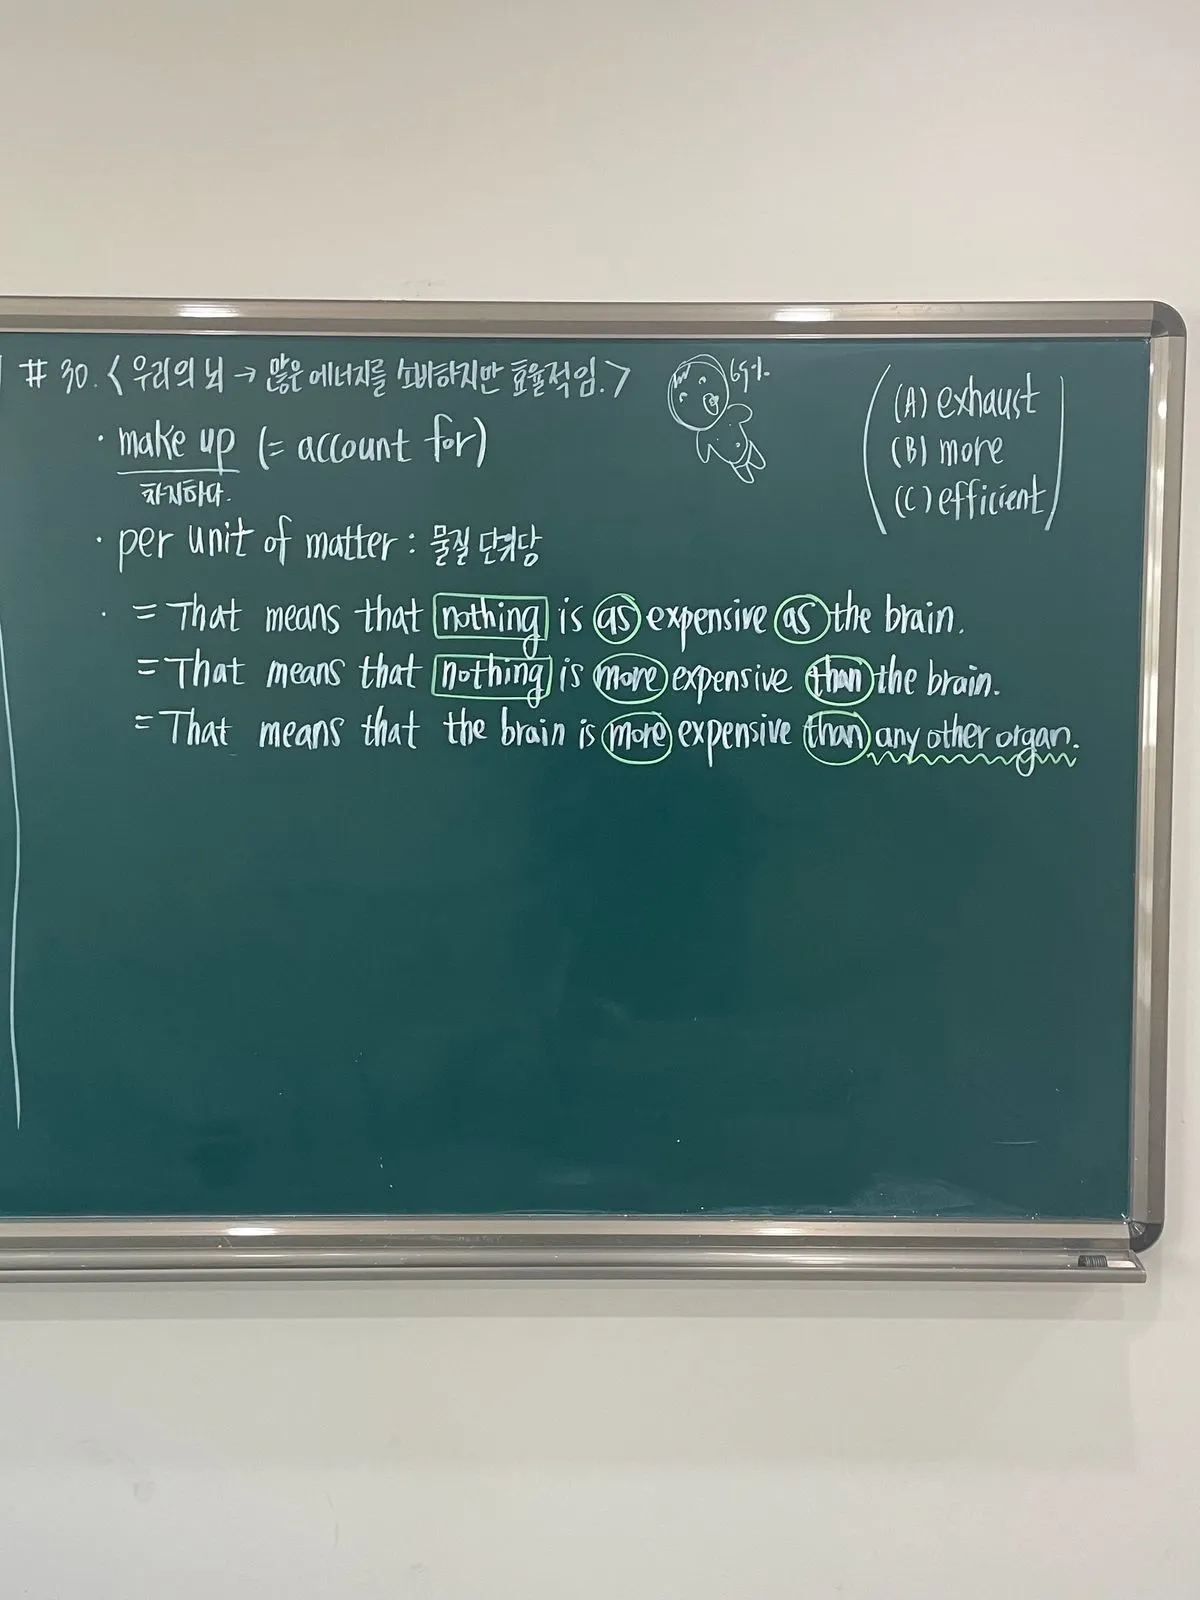 # 30. <우리의 뇌 → 많은 에너지를 소비하지만 효율적임.>
65%.
(A) exhaust
(B) more
(C) efficient
· make up (= account for)
차지하다.
· per unit of matter : 물질 단위당
· = That means that nothing is as expensive as the brain.
= That means that nothing is more expensive than the brain.
= That means that the brain is more expensive than any other organ.